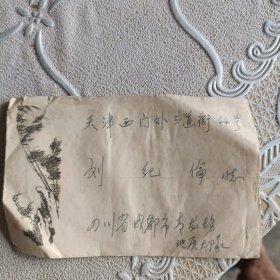 天津西门外三道街44号
刘纪伦
四川省成都市青龙场
地质